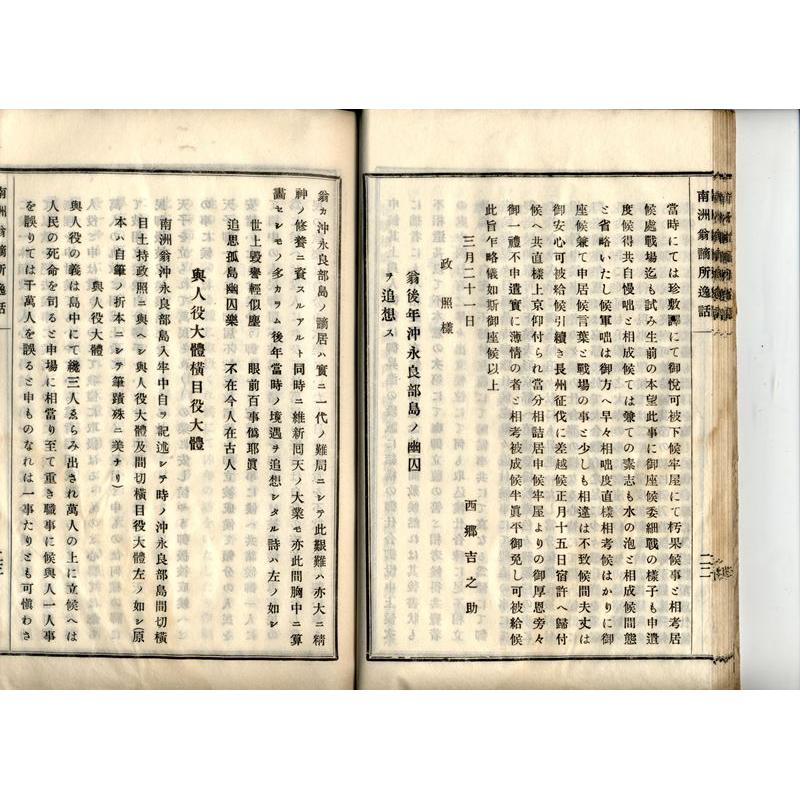 南洲翁謫所逸話
二二
當時にては珍敷譯にて御悅可被下候牢屋にて朽果候事と相考居
候處戰場迄も試み生前の本望此事に御座候委細戰の樣子も申遣
度候得共自慢咄と相成候ては兼ての素志も水の泡と相成候間態
と省略いたし候軍咄は御方へ早々相咄度直樣相考候はかりに御
座候兼て申居候言葉と戰場の事と少しも相違は不致候間夫丈は
御安心可被給候引續き長州征伐に差越候正月十五日宿許へ歸付
候へ共直樣上京仰付られ當分相詰居申候牢屋よりの御厚恩旁々
御一禮不申遣實に薄情の者と相考被成候半眞平御免し可被給候
此旨乍略儀如斯御座候以上
三月二十一日
西鄕吉之助
政照樣
翁後年沖永良部島ノ幽囚
ヲ追想ス
翁カ沖永良部島ノ謫居ハ實ニ一代ノ難局ニシテ此艱難ハ亦大ニ精
神ノ修養ニ資スルアルト同時ニ維新回天ノ大業モ亦此間胸中ニ算
畵セシモノ多カラム後年當時ノ境遇ヲ追想シタル詩ハ左ノ如シ
世上毀譽輕似塵　眼前百事僞耶眞
追思孤島幽囚樂　不在今人在古人
與人役大體橫目役大體
南洲翁沖永良部島入牢中自ヲ記述シテ時ノ沖永良部島間切橫
目土持政照ニ與ヘシ與人役大體及間切橫目役大體左ノ如シ(原
本ハ自筆ノ折本ニシテ筆蹟殊ニ美ナリ)
與人役大體
與人役の義は島中にて纔三人ゑらみ出され萬人の上に立候へは
人民の死命を司ると申場に相當り至て重き職事に候與人一人事
を誤りては千萬人を誤ると申ものなれは一事たりとも可愼わさ
南洲翁謫所逸話
二三